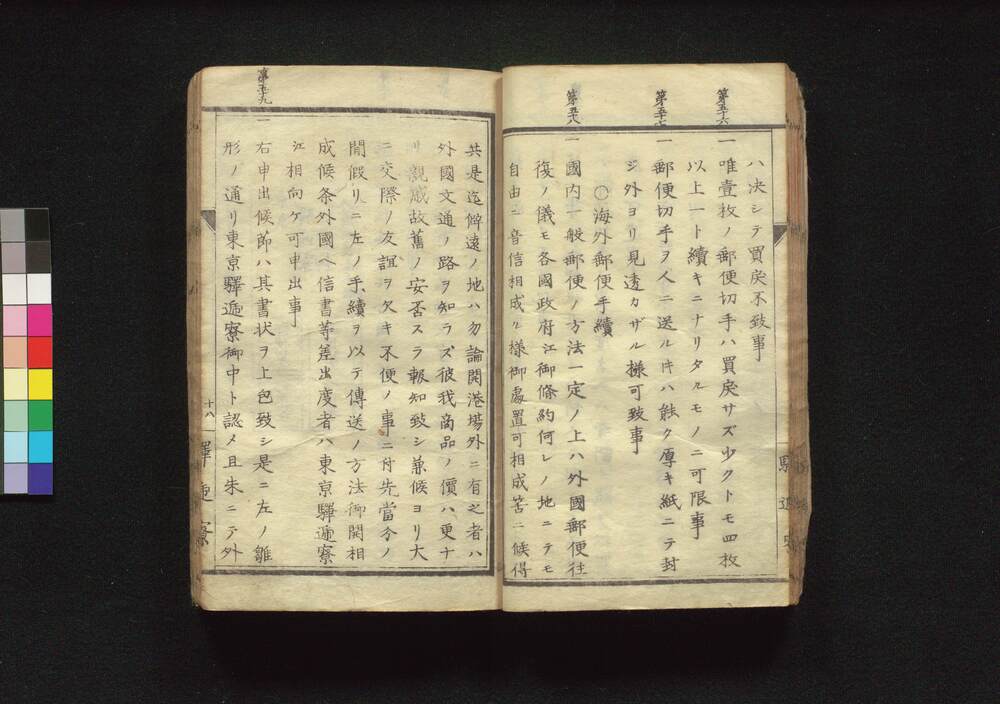 ハ决シテ買戾不致事
第五十六
一 唯壹枚ノ郵便切手ハ買戾サズ少クトモ四枚
以上一ト續キニナリタルモノニ可限事
第五十七
一 郵便切手ヲ人ニ送ル𪜈ハ能ク厚キ紙ニテ封
ジ外ヨリ見透カザル樣可致事
○海外郵便手續
第五十八
一 國内一般郵便ノ方法一定ノ上ハ外國郵便徃
復ノ儀モ各國政府江御條約何レノ地ニテモ
自由ニ音信相成ル樣御處置可相成筈ニ候得
共是迄僻遠ノ地ハ勿論開港場外ニ有之者ハ
外國文通ノ路ヲ知ラズ彼我商品ノ價ハ更ナ
リ親戚故舊ノ安否スラ報知致シ兼候ヨリ大
ニ交際ノ友誼ヲ欠キ不便ノ事ニ付先當分ノ
間假リニ左ノ手續ヲ以テ傳送ノ方法御開相
成候条外國ヘ信書等差出度者ハ東京驛遞寮
江相向ケ可申出事
第五十九
一 右申出候節ハ其書状ヲ上包致シ是ニ左ノ雛
形ノ通リ東京驛遞寮御中ト認メ且朱ニテ外
十八
驛遞寮